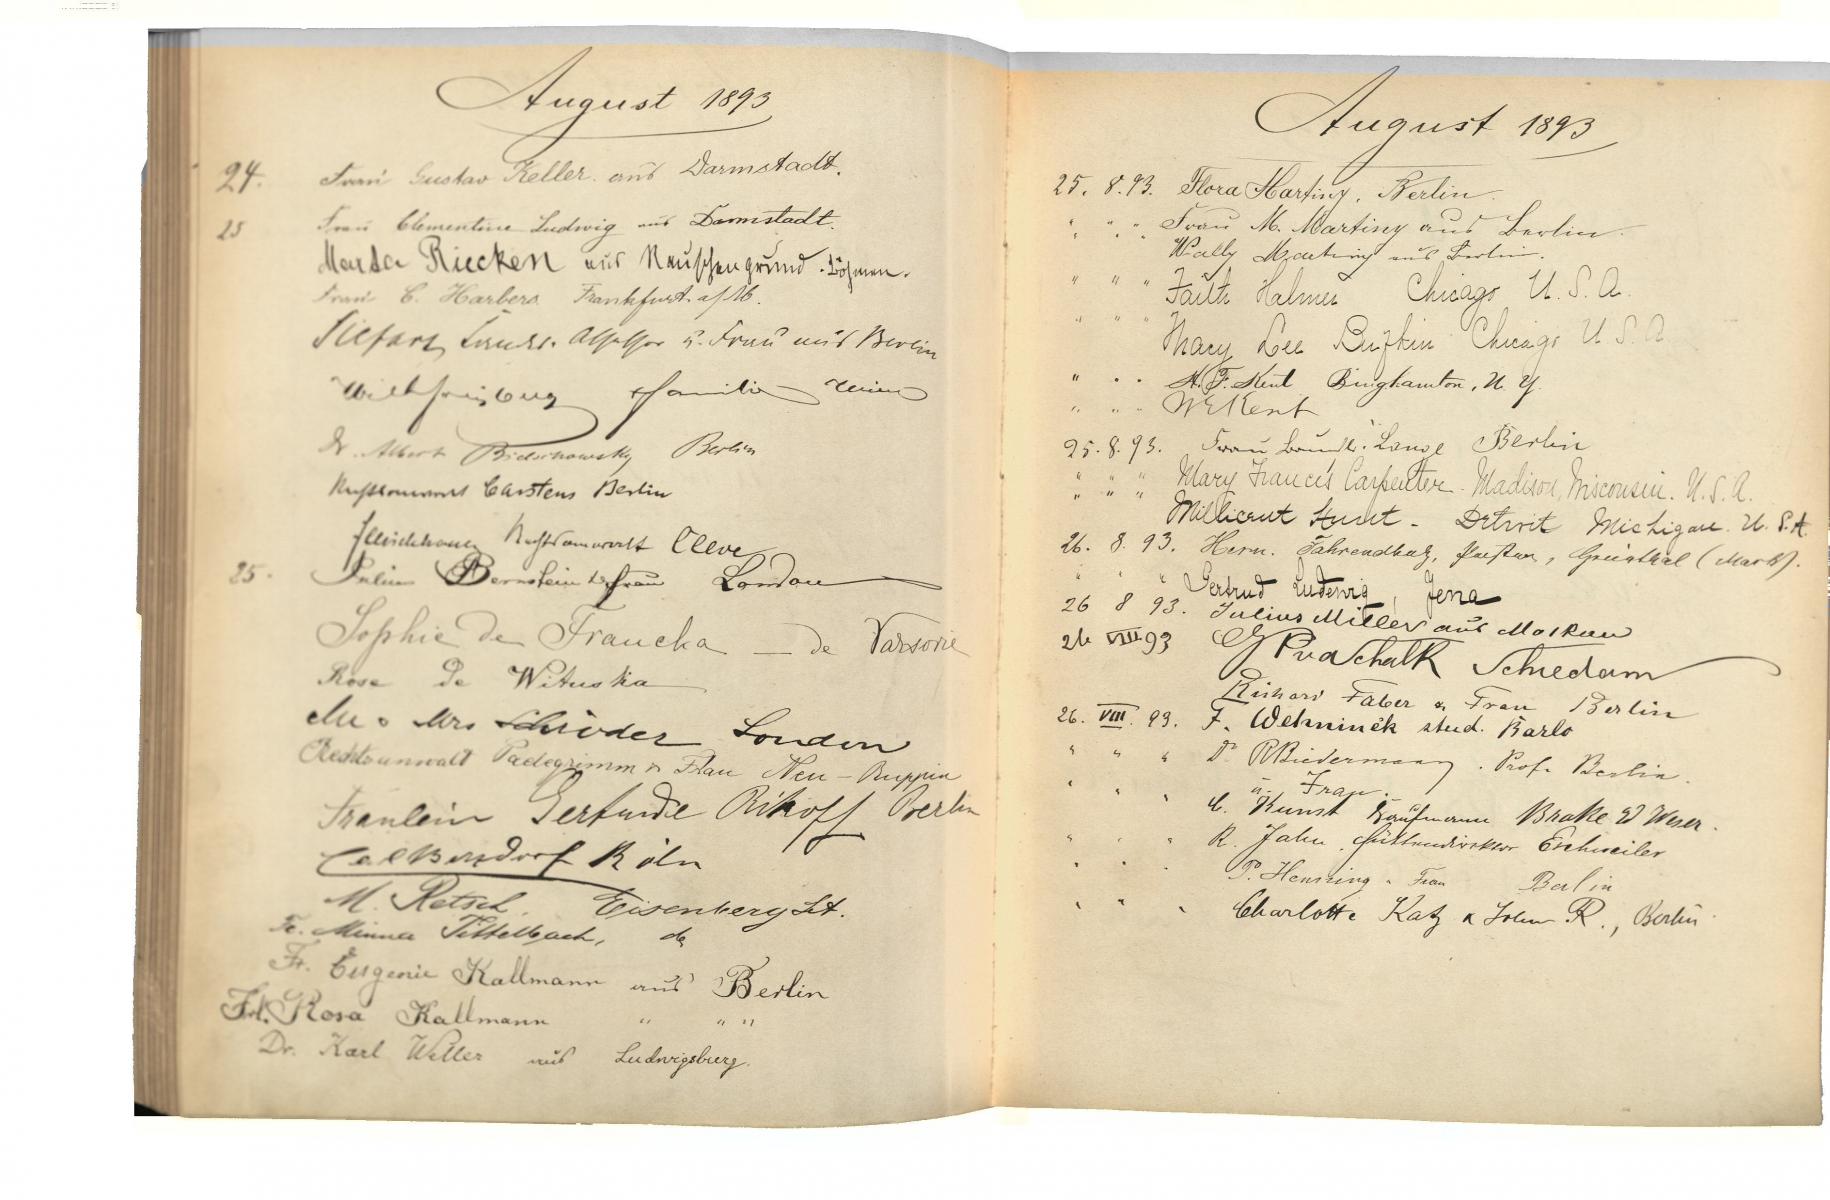 August 1893
24. Frau Gustav Keller aus Darmstadt.
25 Frau Clementine Ludwig aus Darmstadt.
Riecken aus Rauschengrund. Böhmen.
Frau C. Harbers Frankfurt a/M.
Assessor u. Frau aus Berlin
Familie Wien
Dr. Albert Bielschowsky Berlin
Rechtsanwalt Carstens Berlin
Rechtsanwalt Cleve
25. Julius Bernstein & Frau London
Sophie de Francka — de Varsovie
Rose de Wituska
Mr & Mrs Schröder London
Rechtsanwalt Padegrimm & Frau Neu-Ruppin
Fraulein Gertrude Rikoff Berlin
Köln
M. Retsch, Eisenberg
Fr. Minna Tittelbach, do
Fr. Eugenie Kallmann aus Berlin
Frl. Rosa Kallmann " " "
Dr. Karl Weller aus Ludwigsburg.
August 1893
25. 8. 93. Flora Martiny, Berlin.
" " " Frau M. Martiny aus Berlin.
Wally Martiny aus Berlin.
" " " Faith Holmes Chicago U. S. A.
" " " Mary Lee Bufkin Chicago U S. A
" " " A. F. Kent Binghamton, N. Y.
" " " W E Kent
25. 8. 93. Frau Lange Berlin
" " " Mary Francis Carpenter. Madison, Wisconsin. U. S. A.
" " " Millicent Hunt - Detroit Michigan. U. S. A.
26. 8. 93. Herm. Fahrendholz, Pastor, Grünthal (Mark).
" " " Gertrud Ludewig, Jena
26 8 93. Julius Miller aus Moskau
26 VIII 93 Schiedam
Richard Faber u. Frau Berlin
26. VIII. 93. F. Wehninck stud. Barlo
" " " Dr R Biedermann. Prof. Berlin.
u. Frau.
" " " C. Kunst Kaufmann Brake a/d Weser.
" " " R. Jahn, Hüttendirektor Eschweiler
" " " P. Henning u. Frau Berlin
" " " Charlotte Katz & Sohn R., Berlin